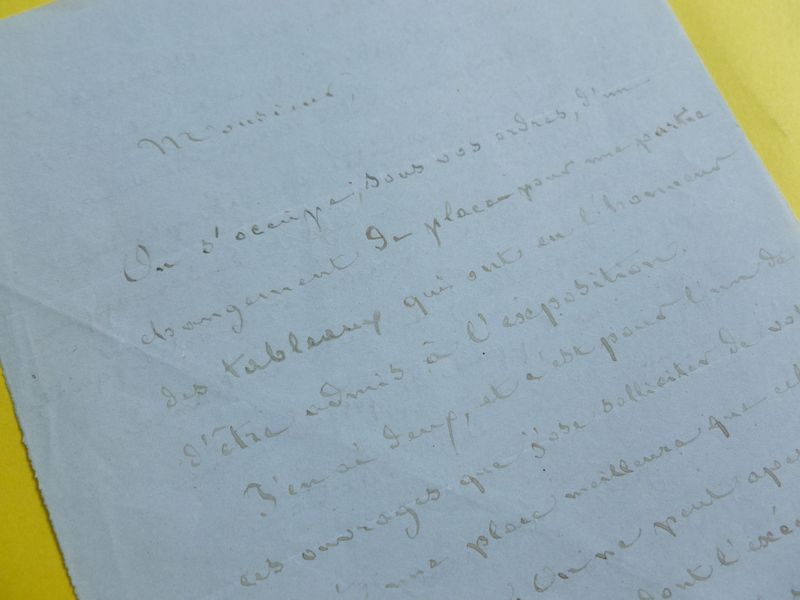 Monsieur,
On s'occupe, sous vos ordres, d'un
changement de place pour une partie
des tableaux qui ont eu l'honneur
d'être admis à l'exposition.
J'en ai deux, et c'est pour l'un de
ces ouvrages que j'ose solliciter de vos
une place meilleure que cel
On ne peut aper
dont l'exéc